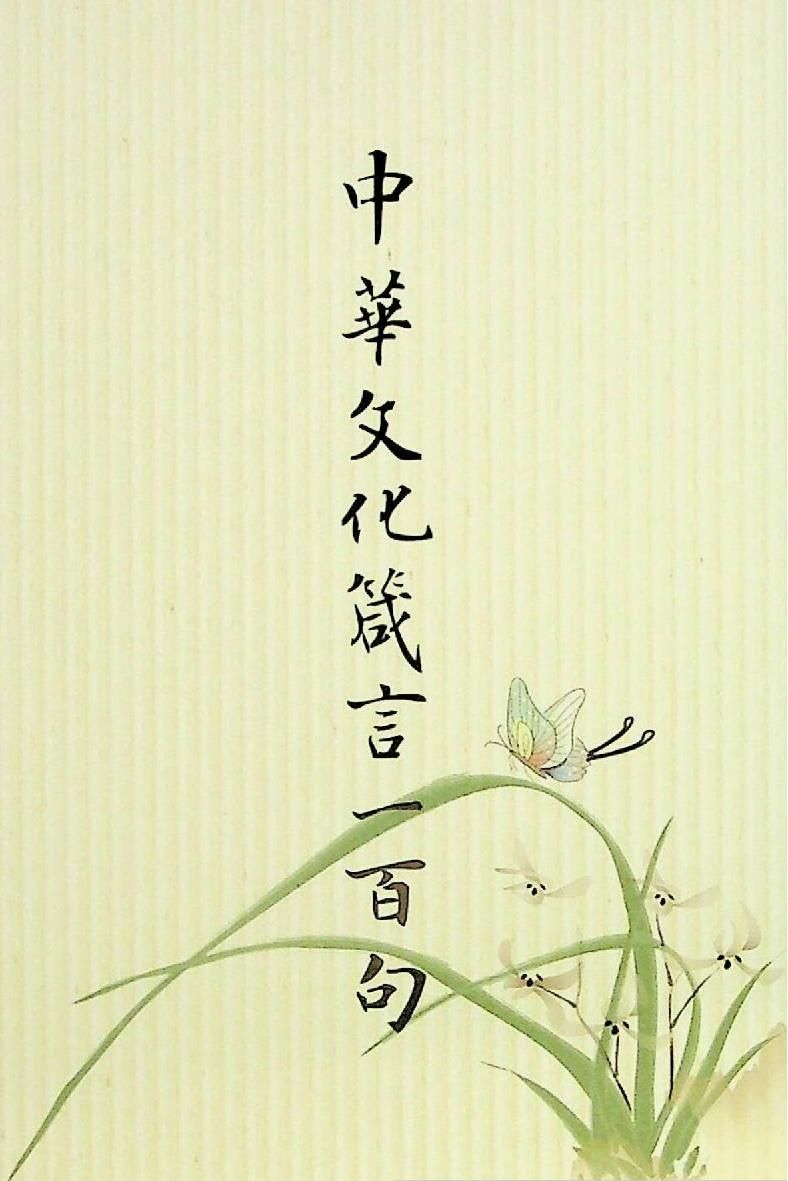 中華文化箴言一百句